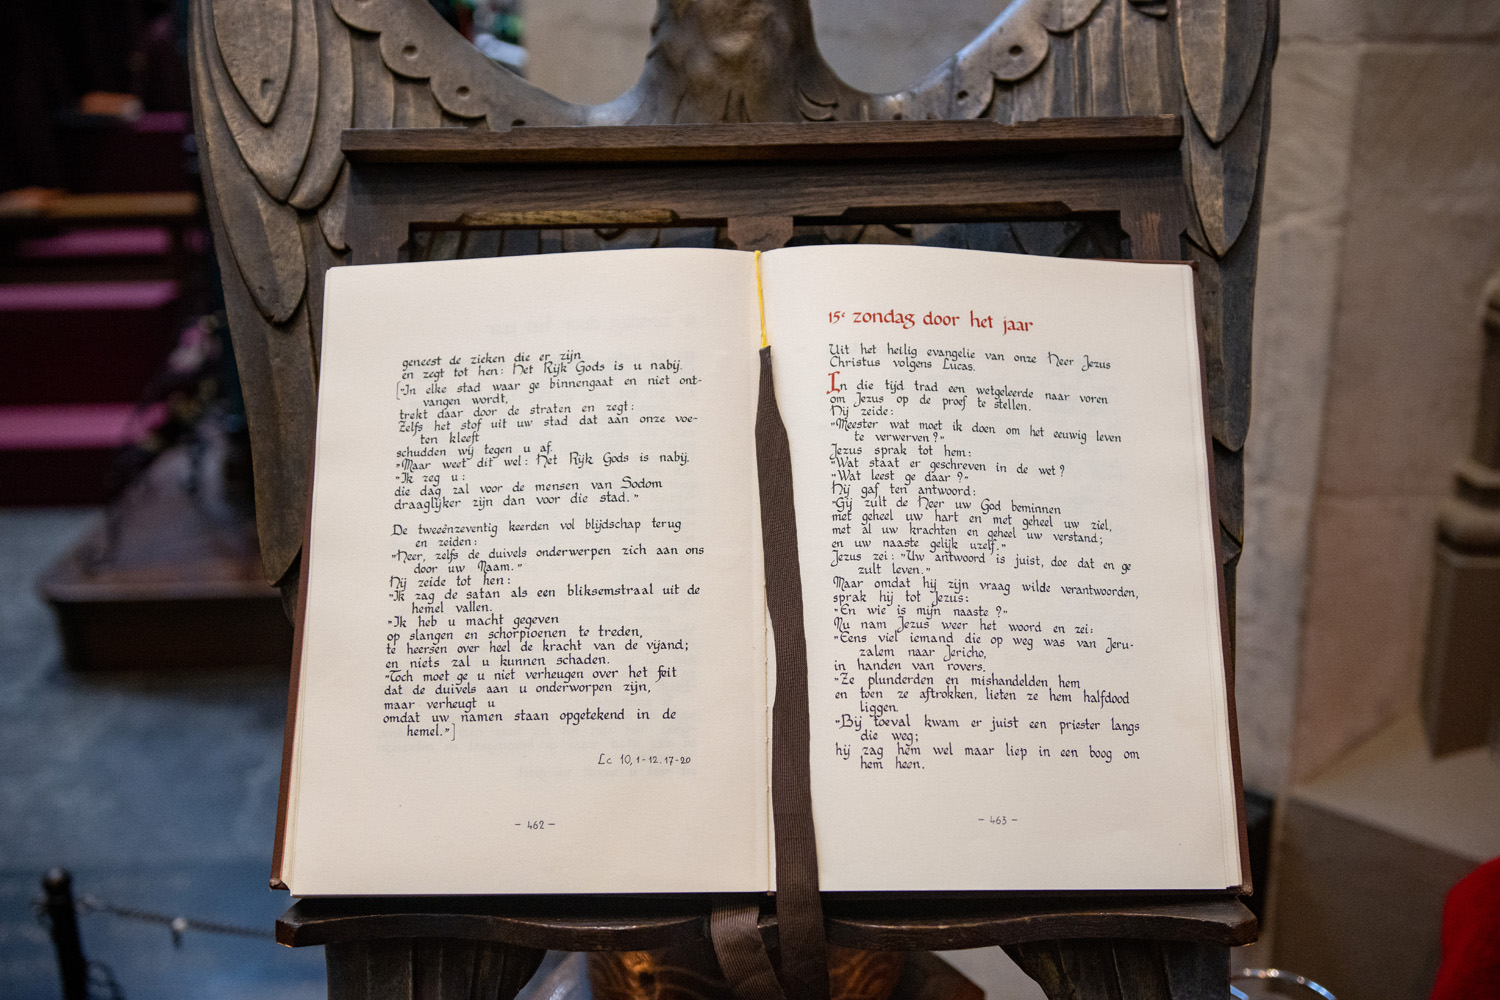 geneest de zieken die er zijn
en zegt tot hen: Het Rijk Gods is u nabij.
["In elke stad waar ge binnengaat en niet ont-
vangen wordt,
trekt daar door de straten en zegt:
Zelfs het stof uit uw stad dat aan onze voe-
ten kleeft
schudden wij tegen u af.
"Maar weet dit wel: Het Rijk Gods is nabij.
"Ik zeg u:
die dag zal voor de mensen van Sodom
draaglijker zijn dan voor die stad."
De tweeënzeventig keerden vol blijdschap terug
en zeiden:
"Heer, zelfs de duivels onderwerpen zich aan ons
door uw Naam."
Hij zeide tot hen:
"Ik zag de satan als een bliksemstraal uit de
hemel vallen.
"Ik heb u macht gegeven
op slangen en schorpioenen te treden,
te heersen over heel de kracht van de vijand;
en niets zal u kunnen schaden.
"Toch moet ge u niet verheugen over het feit
dat de duivels aan u onderworpen zijn,
maar verheugt u
omdat uw namen staan opgetekend in de
hemel."]
Lc 10, 1-12. 17-20
- 462 -
15e zondag door het jaar
Uit het heilig evangelie van onze Heer Jezus
Christus volgens Lucas.
In die tijd trad een wetgeleerde naar voren
om Jezus op de proef te stellen.
Hij zeide:
"Meester wat moet ik doen om het eeuwig leven
te verwerven?"
Jezus sprak tot hem:
"Wat staat er geschreven in de wet?
"Wat leest ge daar?"
Hij gaf ten antwoord:
"Gij zult de Heer uw God beminnen
met geheel uw hart en met geheel uw ziel,
met al uw krachten en geheel uw verstand;
en uw naaste gelijk uzelf."
Jezus zei: "Uw antwoord is juist, doe dat en ge
zult leven."
Maar omdat hij zijn vraag wilde verantwoorden,
sprak hij tot Jezus:
"En wie is mijn naaste?"
Nu nam Jezus weer het woord en zei:
"Eens viel iemand die op weg was van Jeru-
zalem naar Jericho,
in handen van rovers.
"Ze plunderden en mishandelden hem
en toen ze aftrokken, lieten ze hem halfdood
liggen.
"Bij toeval kwam er juist een priester langs
die weg;
hij zag hem wel maar liep in een boog om
hem heen.
- 463 -